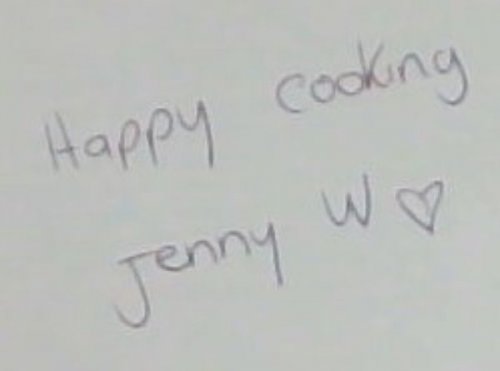 Happy cooking
Jenny W ♡